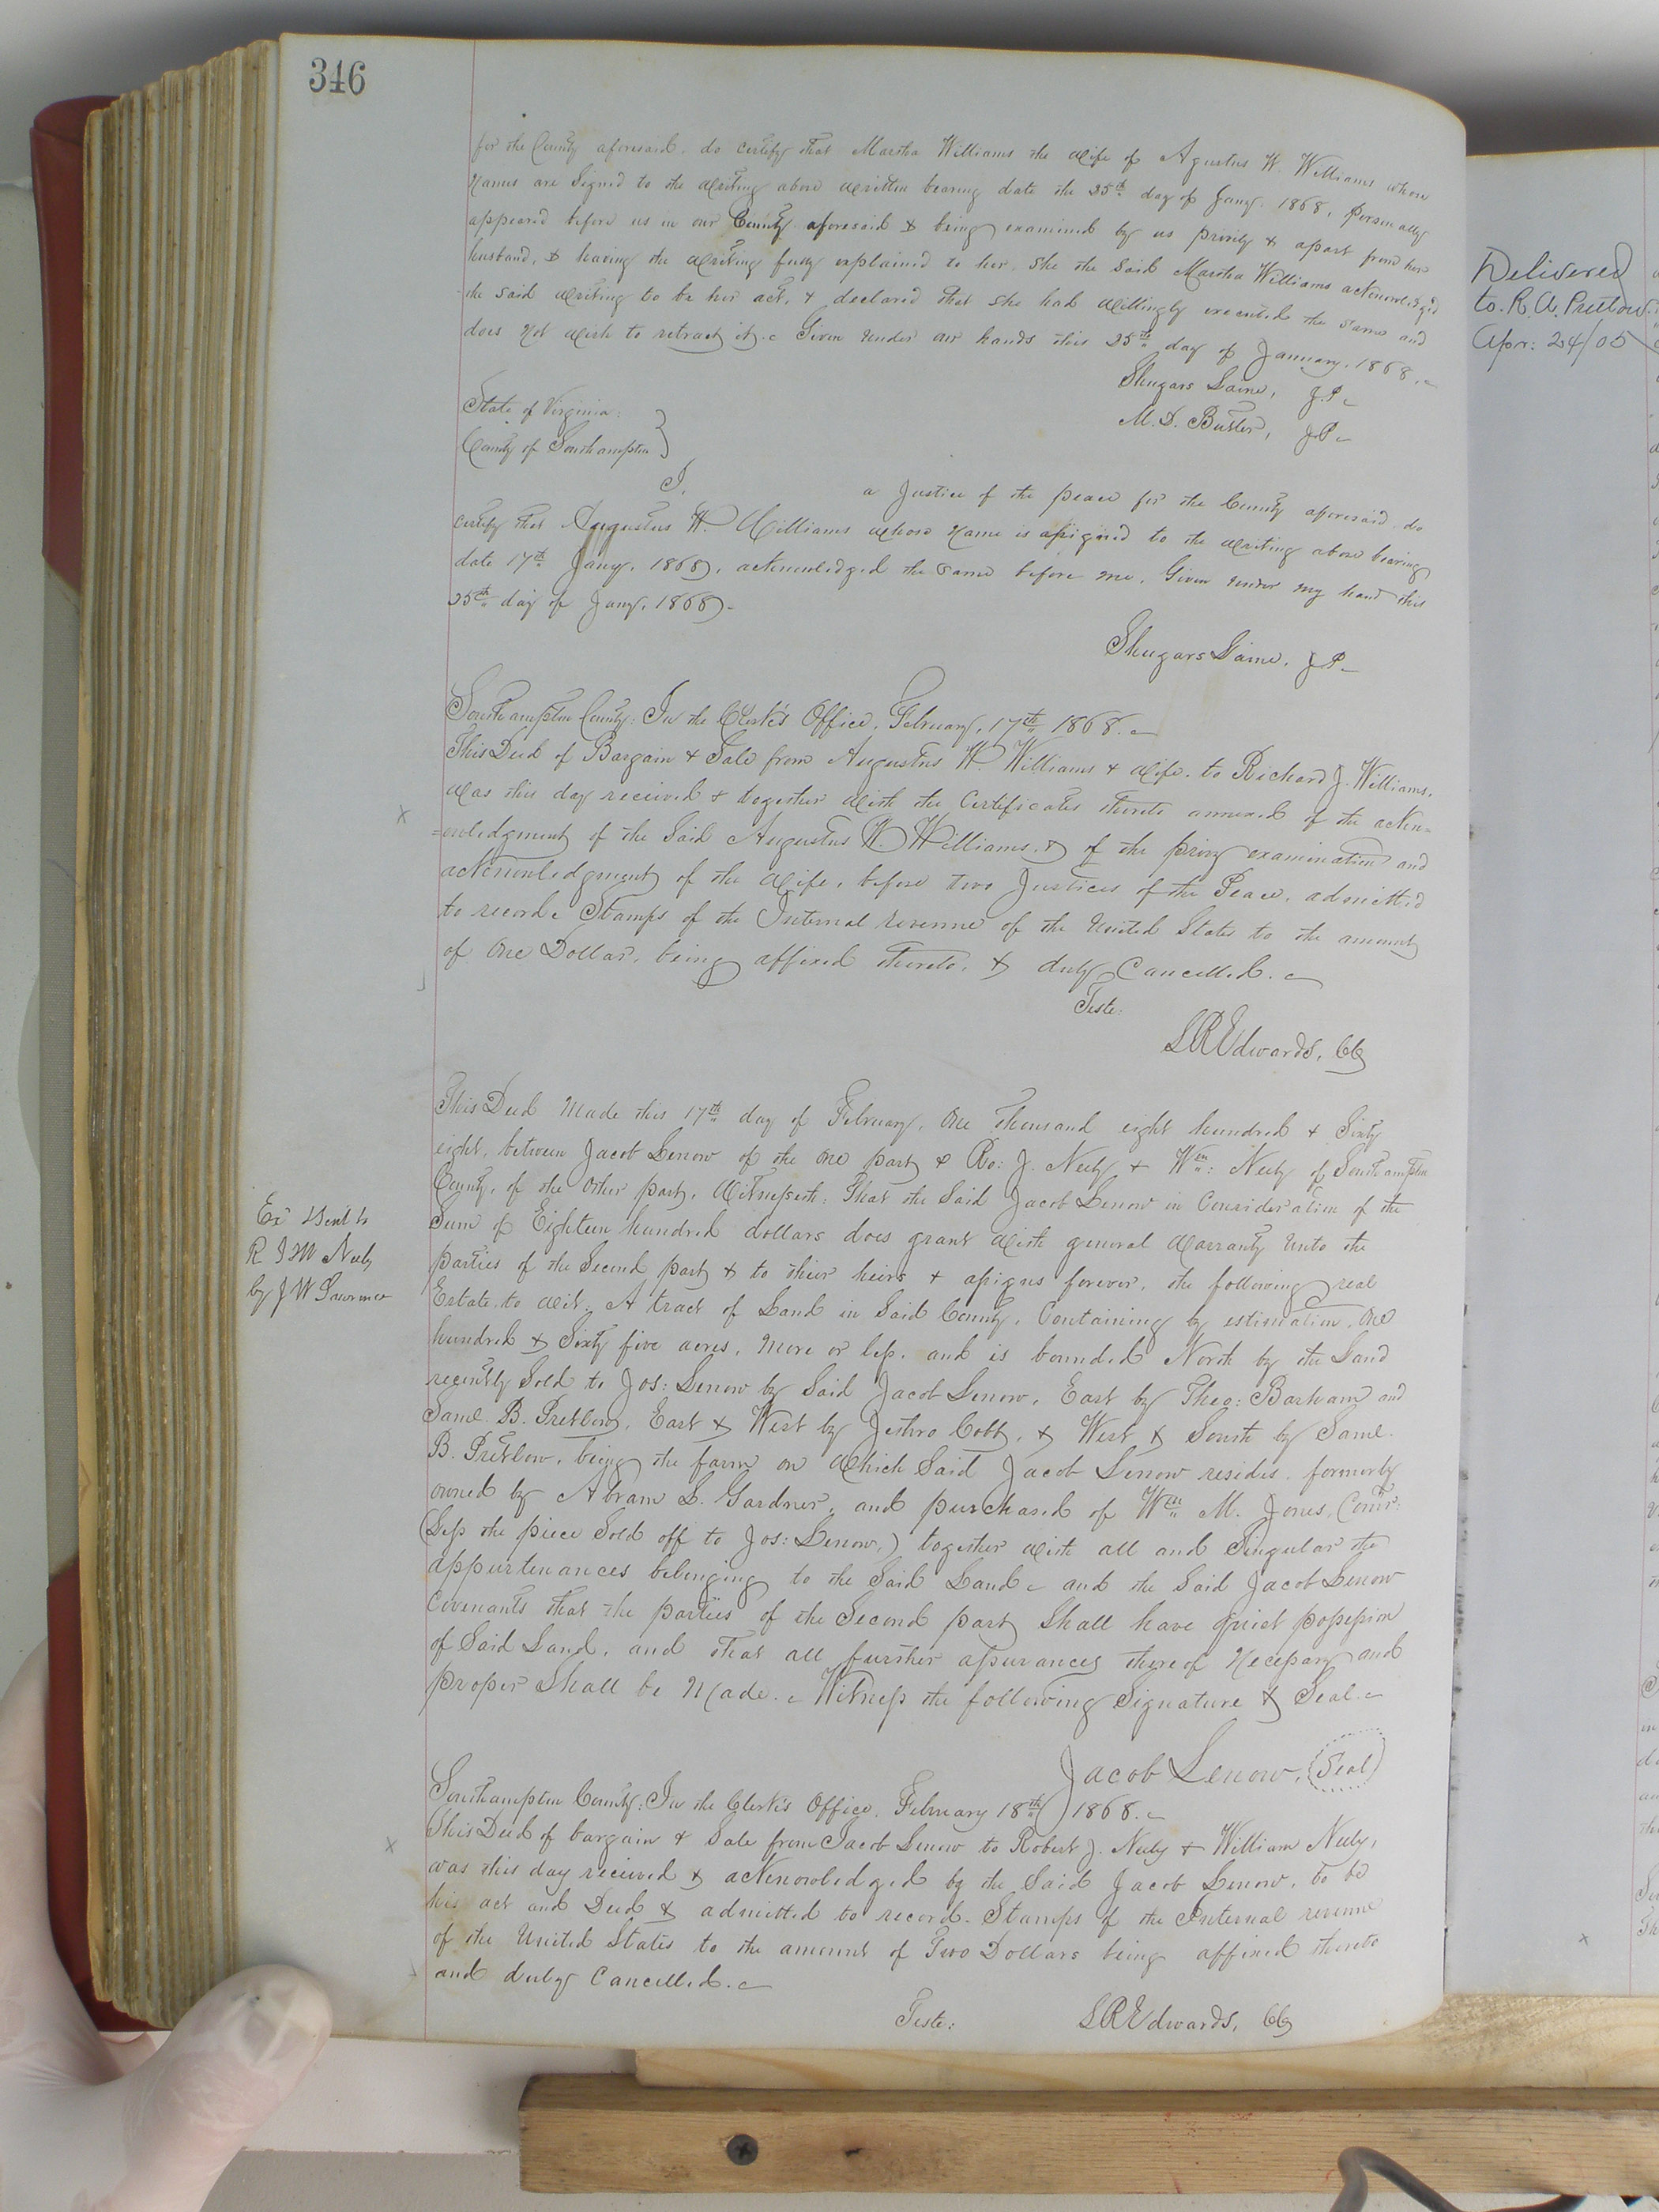 346
for the County aforesaid. do certify that Martha Williams the wife of Agustus W. Williams whose
Names are Signed to the writing above written bearing date the 25th day of Jany. 1868, personally
appeared before us in our County aforesaid & being examined by us privily & apart from her
husband, & having the writing fully explained to her, she the said Martha Williams acknowledged
the said writing to be her act, & declared that she had willingly executed the same and
does Not wish to retract it. Given under our hands this 25th day of January. 1868.
Shugars Laine, J.P.
M. D. Butler, J.P.
State of Virginia:
County of Southampton
I, a Justice of the peace for the County aforesaid. do
certify that Augustus W. Williams whose Name is assigned to the writing above bearing
date 17th Jany. 1868, acknowledged the same before me. Given under my hand this
25th day of Jany, 1868
Shugars Laine. J.P.
Southampton County: In the Clerk's Office, February, 17th 1868.
This Deed of Bargain & Sale from Augustus W. Williams & wife. to Richard J. Williams.
Was this day received & together with the Certificates thereto annexed of the ackn=
=owledgment of the Said Augustus W. Williams, & of the privy examination and
acknowledgment of the wife, before two Justices of the Peace, admitted
to record. Stamps of the Internal revenue of the United States to the amount
of One Dollar, being affixed thereto, & duly Cancelled.
Teste:
LREdwards, CC
This Deed Made this 17th day of February, One Thousand eight hundred & Sixty
eight, between Jacob Lenow of the one part & Ro: J. Neely & Wm: Neely of Southampton
County, of the Other part, Witnesseth: That the Said Jacob Lenow in Consideration of the
Sum of Eighteen hundred dollars does grant with general Warranty Unto the
parties of the Second part & to their heirs & assigns forever, the following real
Estate, to wit: A tract of Land in Said County, Containing by estimation, One
hundred & Sixty five acres, More or less, and is bounded North by the Land
recently Sold to Jos: Lenow by Said Jacob Lenow, East by Theo: Barham and
Saml. B. Pretlow, East & West by Jethro Cobb, & West & South by Saml.
B. Pretlow, being the farm on Which Said Jacob Lenow resides, formerly
owned by Abram L. Gardner, and purchased of Wm M. Jones, Comr:
(Less the piece Sold off to Jos: Lenow,) together with all and Singular the
appurtenances belonging to the Said Land and the Said Jacob Lenow
Covenants that the parties of the Second part Shall have quiet possession
of Said Land, and that all further assurances thereof Necessary and
proper Shall be Made. Witness the following Signature & Seal.
Jacob Lenow, (Seal)
Southampton County: In the Clerk's Office, February 18th 1868.
This Deed of bargain & Sale from Jacob Lenow to Robert J. Neely & William Neely,
was this day received & acknowledged by the Said Jacob Lenow, to be
his act and Deed & admitted to record. Stamps of the Internal revenue
of the United States to the amount of Two Dollars being affixed thereto
and duly Cancelled.
Teste: LREdwards, CC
Ex Sent to
R J & W Neely
by J W Lawrence
Delivered
to. R. A. Pretlow.
Apr: 24/05